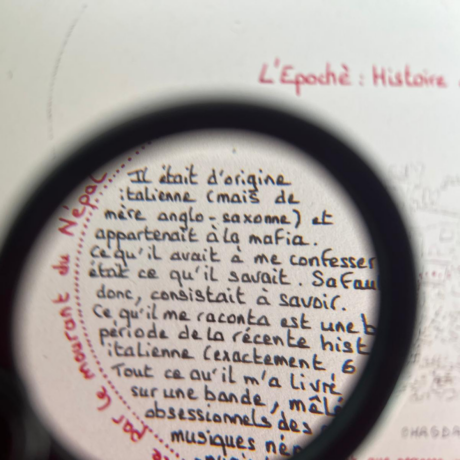 L'Epochè : Histoire
Il était d'origine
italienne (mais de
mère anglo-saxonne) et
appartenait à la mafia.
Ce qu'il avait à me confesser
était ce qu'il savait. Sa
donc, consistait à savoir.
Ce qu'il me raconta est une
période de la récente
italienne (exactement 6
Tout ce qu'il m'a livré
sur une bande,
obsessionnels des
musiques
par le mourant du Népal